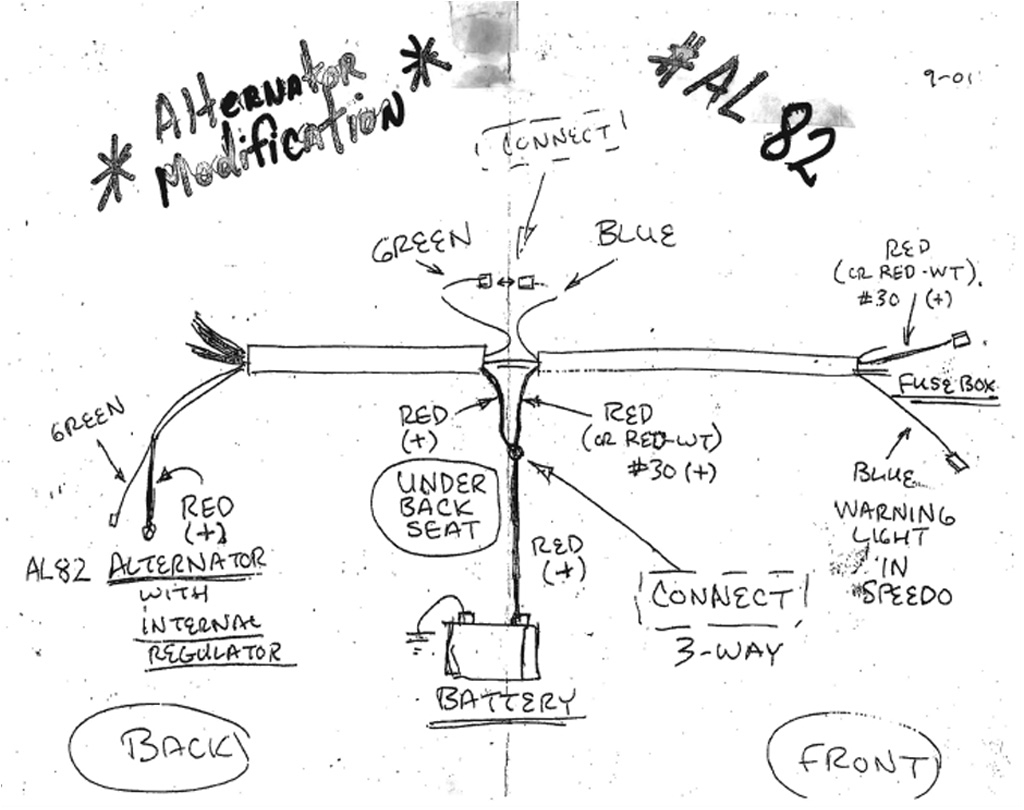 * Alternator *
Modification
#AL
82
9-01
CONNECT
GREEN
BLUE
RED
(OR RED-WT).
#30 (+)
FUSE BOX
GREEN
RED
(+)
RED
(OR RED-WT)
#30 (+)
UNDER
BACK
SEAT
RED
(+)
BLUE
WARNING
LIGHT
IN
SPEEDO
RED
(+)
AL82 ALTERNATOR
WITH
INTERNAL
REGULATOR
CONNECT
3-WAY
BATTERY
BACK
FRONT